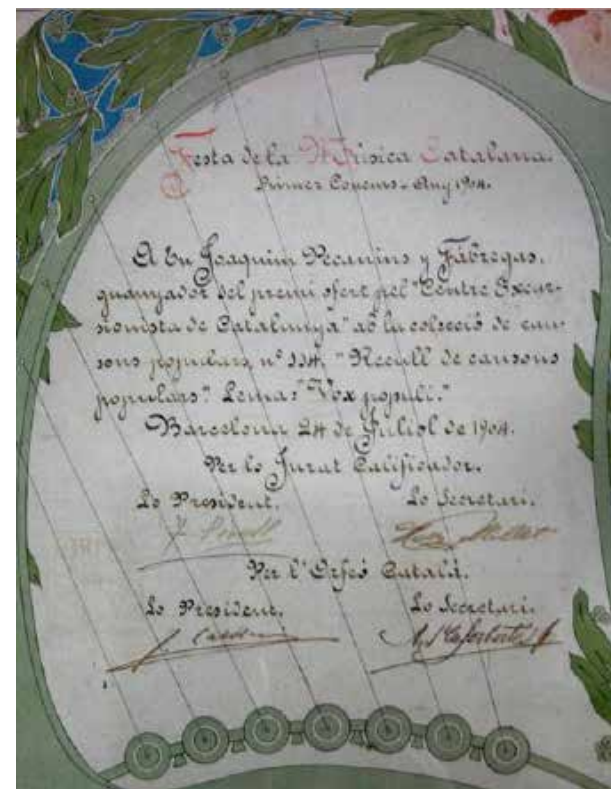 Festa de la Música Catalana.
Primer Concurs - Any 1904.
A En Joaquim Pecanins y Fábregas,
guanyador del premi ofert pel "Centre Excur-
sionista de Catalunya" ab la colecció de can-
sons populars, nº 114. "Recull de cansons
populars". Lema: "Vox populi."
Barcelona 24 de Juliol de 1904.
Per lo Jurat Calificador.
Lo President. Lo Secretari.
Millet
Per l'Orfeó Català.
Lo President. Lo Secretari.